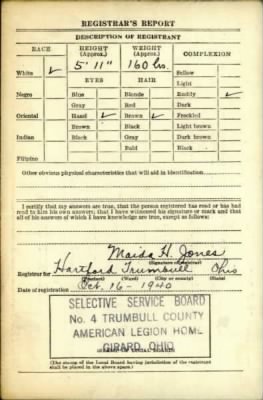 REGISTRAR'S REPORT
DESCRIPTION OF REGISTRANT
RACE HEIGHT (Approx.) WEIGHT (Approx.) COMPLEXION
White ✓ 5' 11" 160 lbs. Sallow
EYES HAIR Light
Negro Blue Blonde Ruddy ✓
Gray Red Dark
Oriental Hazel ✓ Brown ✓ Freckled
Brown Black Light brown
Indian Black Gray Dark brown
Bald Black
Filipino
Other obvious physical characteristics that will aid in identification
I certify that my answers are true; that the person registered has read or has had
read to him his own answers; that I have witnessed his signature or mark and that
all of his answers of which I have knowledge are true, except as follows:
Maida H. Jones
(Signature of registrar)
Registrar for Hartford Trumbull Ohio
(Precinct) (Ward) (City or county) (State)
Date of registration Oct. 16 - 1940
SELECTIVE SERVICE BOARD
No. 4 TRUMBULL COUNTY
AMERICAN LEGION HOME
GIRARD, OHIO
(STAMP OF LOCAL BOARD)
(The stamp of the Local Board having jurisdiction of the registrant
shall be placed in the above space.)